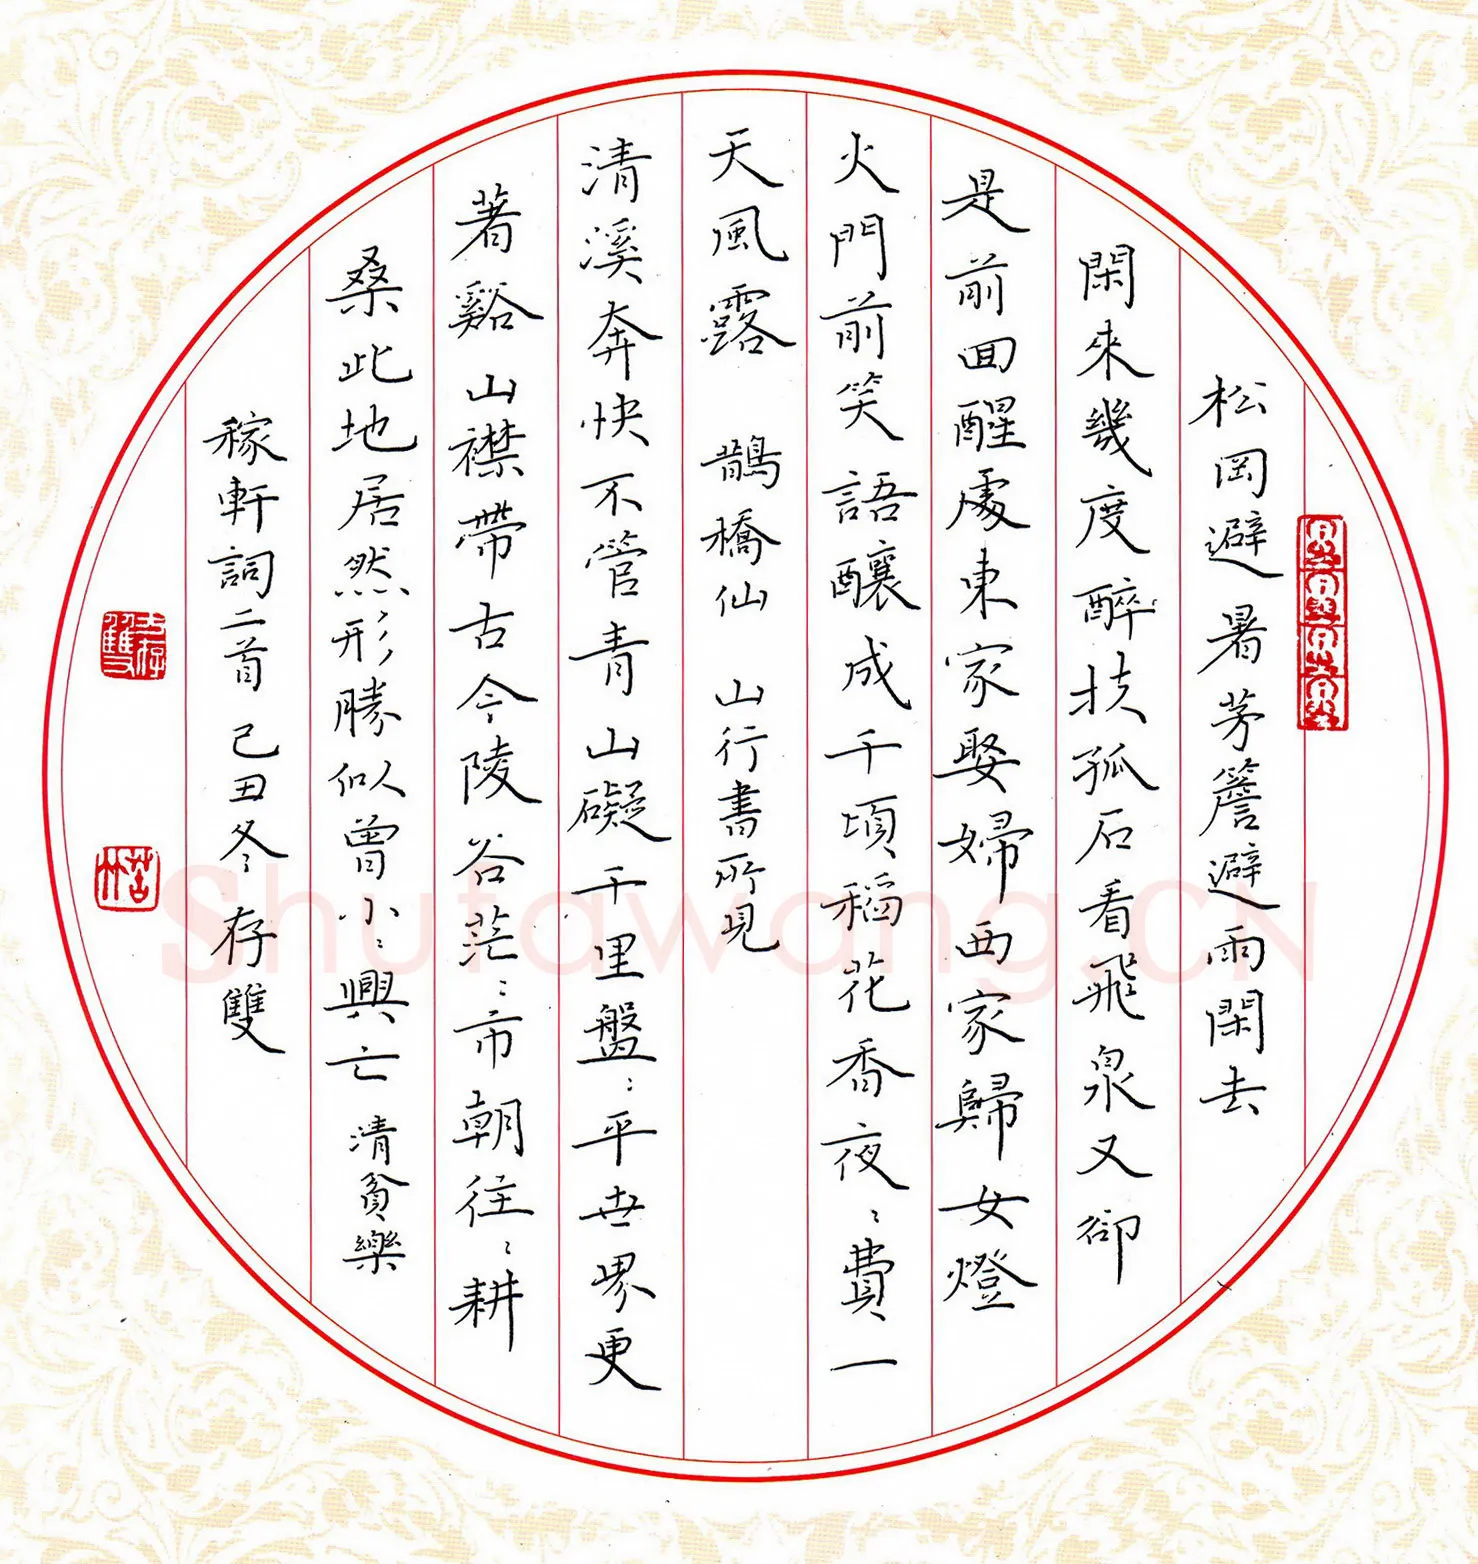 松岡避暑茅簷避雨閑去
閑來幾度醉扶孤石看飛泉又卻
是前回醒處東家娶婦西家歸女燈
火門前笑語釀成千頃稻花香夜〻費一
天風露 鵲橋仙 山行書所見
清溪奔快不管青山礙千里盤〻平世界更
著谿山襟帶古今陵谷茫〻市朝往〻耕
桑此地居然形勝似曾小〻興亡 清貧樂
稼軒詞二首 己丑冬 存雙
Shufawang.CN